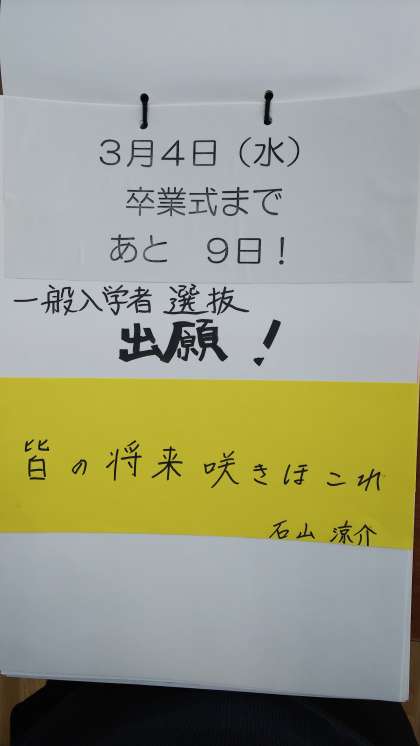 3月4日（水）
卒業式まで
あと　9日！
一般入学者選抜
出願！
皆の将来咲きほこれ
石山 涼介